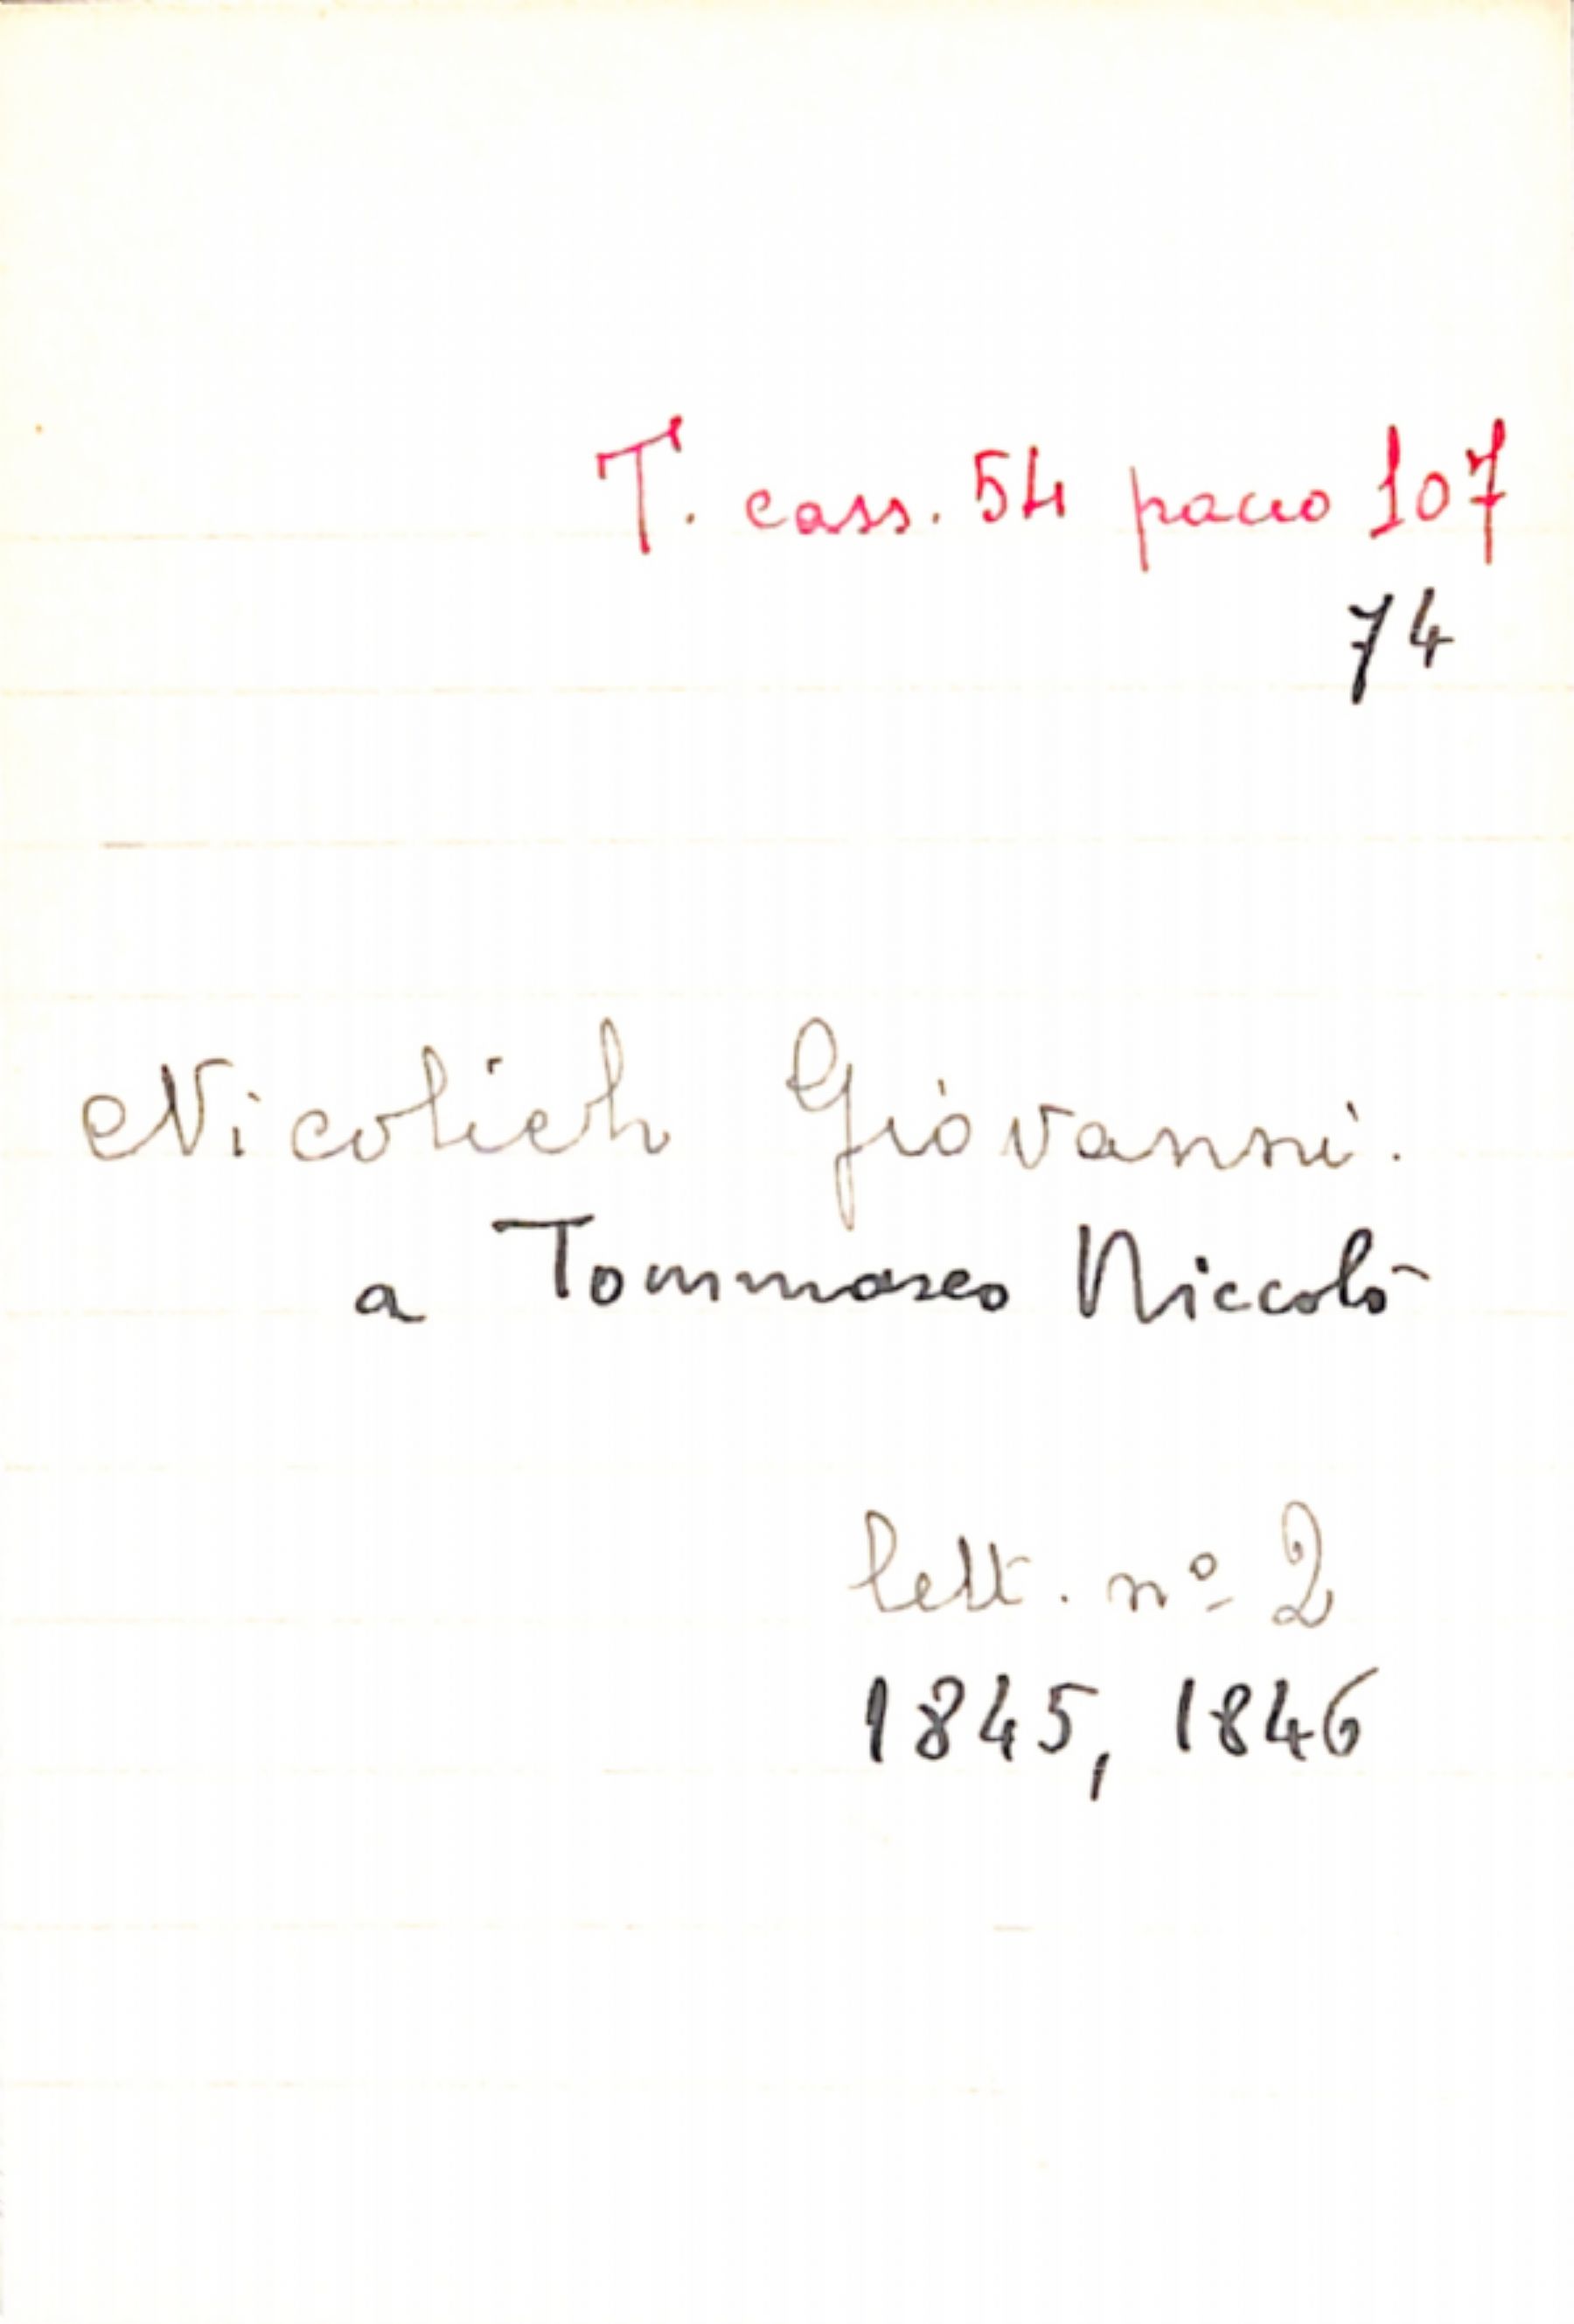 T. cass. 54 pacco 107
74
Nicolich Giovanni.
a Tommaseo Niccolò
lett. nº 2
1845, 1846